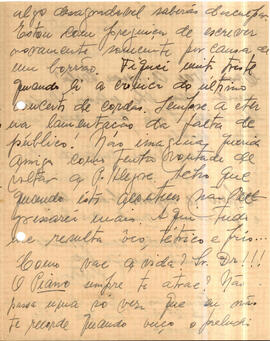 algo desagradável saberás desculpar
Estou com preguiça de escrever
novamente somente por causa de
um borrão. Fiquei muito triste
quando li a crônica do último
concerto de cordas. Sempre a eter
na lamentação da falta de
público. Não imaginas, querida
amiga como tenho vontade de
voltar a P. Alegre. Acho que
quando isto acontecer não
mais. Aqui tudo
me resulta ôco, tétrico e frio...
Como vae a vida? Sr. Dr!!!
O Piano sempre te atrae? Não
passa uma só vez que eu não
te recorde quando ouço o preludi